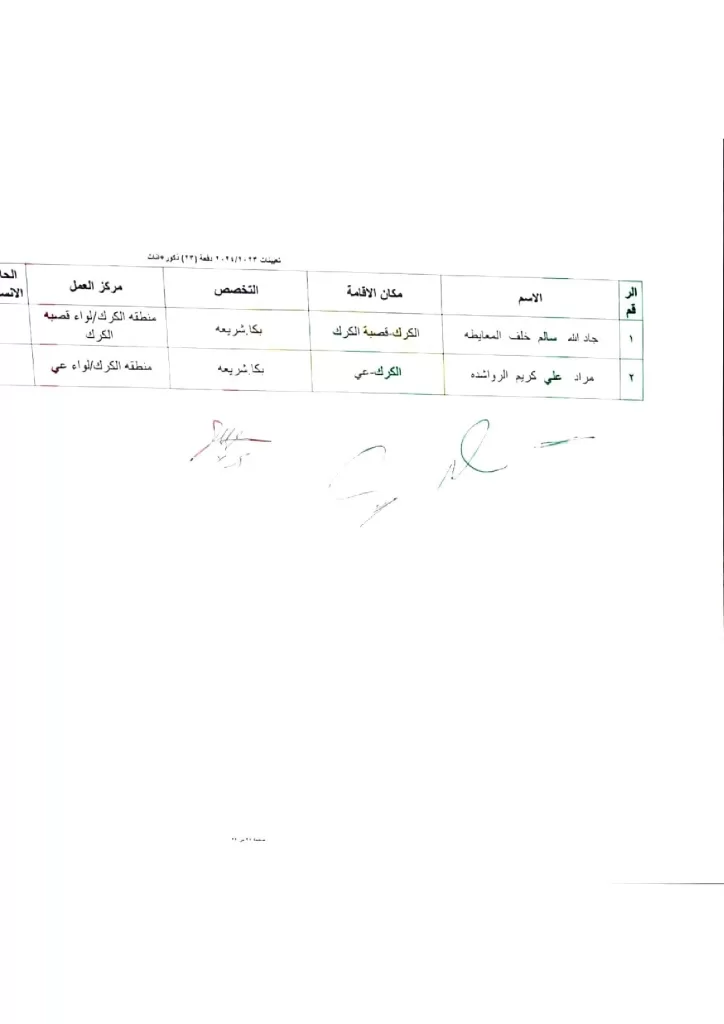 تعيينات ٢٠٢٤/٢٠٢٣ دفعة (٢٣) ذكور+اناث
الرقم الاسم مكان الاقامة التخصص مركز العمل الحا
الانس
١ جاد الله سالم خلف المعايطه الكرك-قصبة الكرك بكا.شريعه منطقه الكرك/لواء قصبه
الكرك
٢ مراد علي كريم الرواشده الكرك-عي بكا.شريعه منطقه الكرك/لواء عي